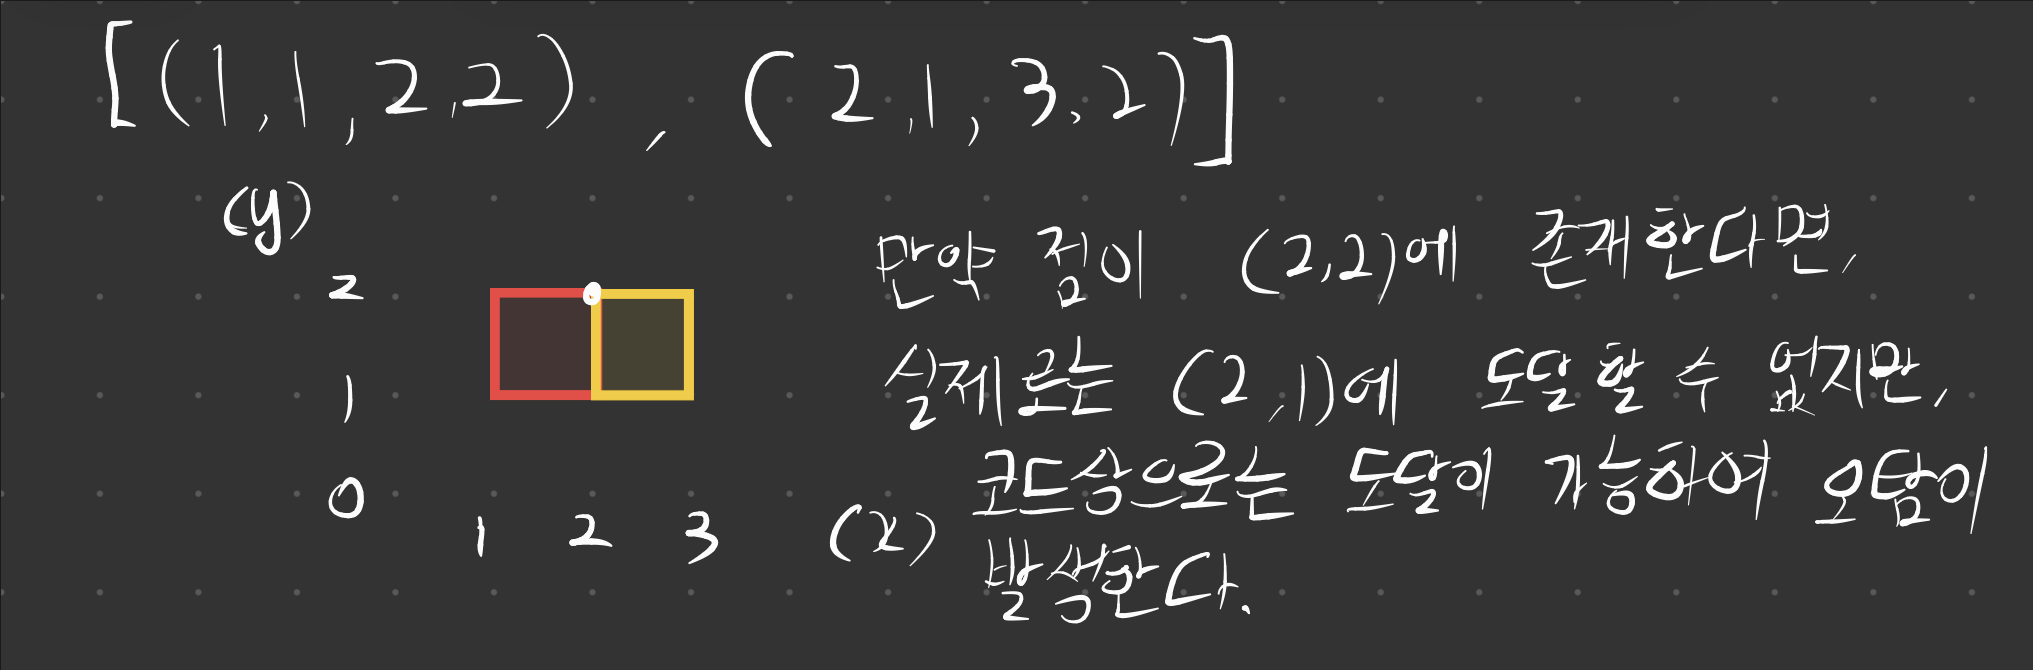 [(1,1,2,2), (2,1,3,2)]
(y)
2
만약 점이 (2,2)에 존재한다면,
1
실제로는 (2,1)에 도달할 수 없지만,
0
코드상으로는 도달이 가능하여 오탐이
1 2 3 (x)
발생한다.